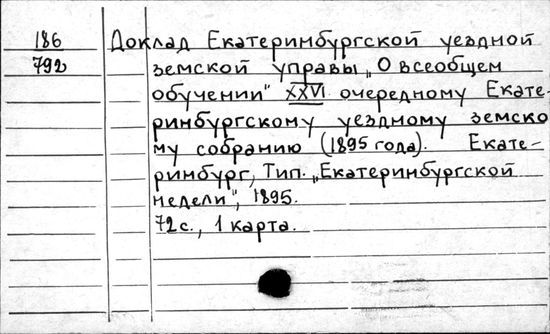 186 Доклад Екатеринбургской уездной
792 земской управы „О всеобщем
обучении" XXVI очередному Екате-
ринбургскому уездному земско
му собранию (1895 года). Екате-
ринбург, Тип. „Екатеринбургской
недели", 1895.
72 с., 1 карта.